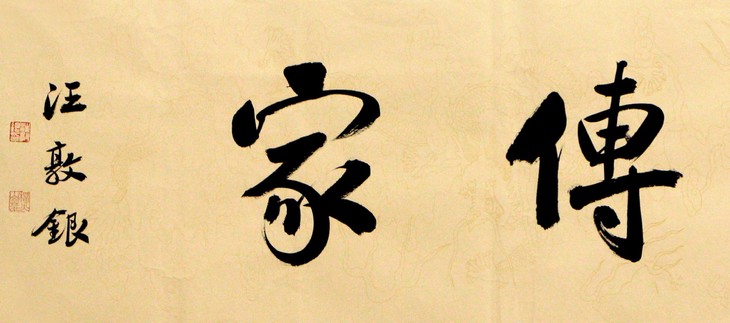 傳家
汪敦銀